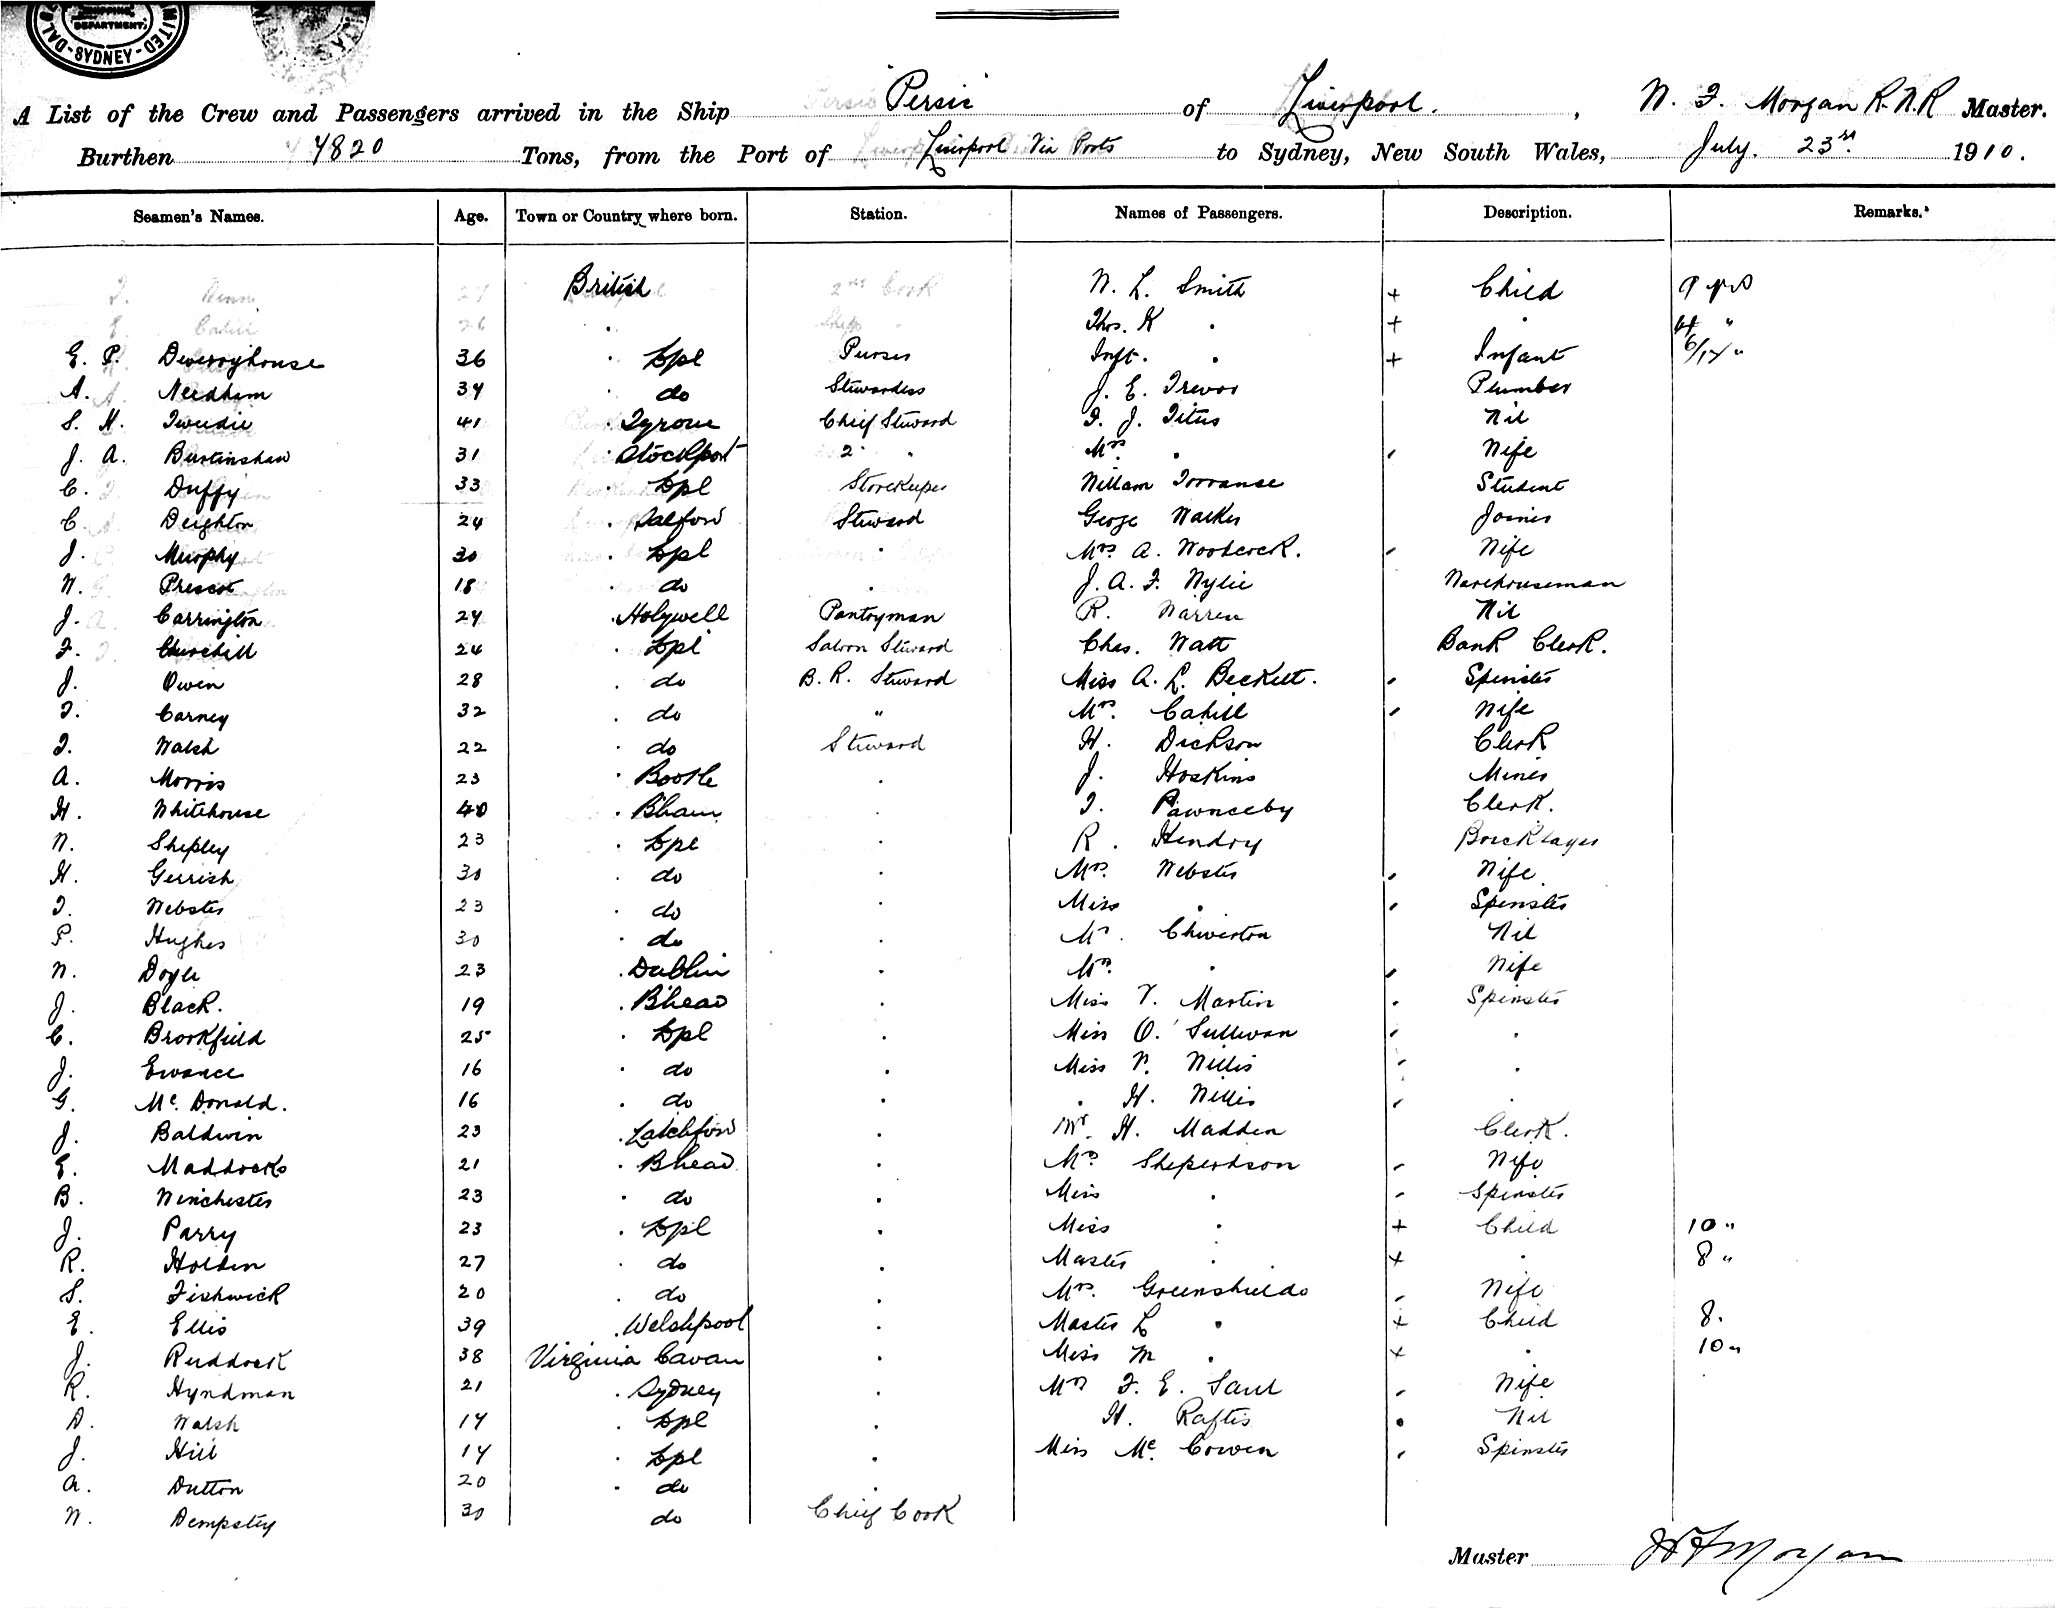 SHIPPING
DEPARTMENT.
SYDNEY
A List of the Crew and Passengers arrived in the Ship Persic of Liverpool. , W. F. Morgan R.N.R Master.
Burthen 4820 Tons, from the Port of Liverpool Via Ports to Sydney, New South Wales, July. 23rd. 1910.
Seamen's Names. Age. Town or Country where born. Station. Names of Passengers. Description. Remarks.
27 British 2nd Cook W. L. Smith + Child 9 yrs
E. Cahill 26 . Thos. K . + . "
E. P. Deverryhouse 36 . Lpl Purser Inft. . + Infant "
A. Needham 34 . do Stewardess J. E. Trevor Plumber
S. H. Tweedie 41 . Tyrone Chief Steward F. J. Titus Nil
J. A. Burtinshaw 31 . Stockport 2 " Mrs . Wife
C. Duffy 33 . Lpl Storekeeper William Torranse Student
C. Deighton 24 . Salford Steward George Walker Joiner
J. Murphy 30 . Lpl . Mrs. A. Woodcock. Wife
W. Prescot 18 . do . J. A. F. Wylie Warehouseman
J. Carrington 24 . Holywell Pantryman R. Warren Nil
F. Churchill 24 . Lpl Saloon Steward Chas. Watt Bank Clerk.
J. Owen 28 . do B. R. Steward Miss A. L. Beckett. Spinster
T. Carney 32 . do " Mrs. Cahill Wife
T. Walsh 22 . do Steward H. Dickson Clerk
A. Morris 23 . Bootle . J. Hoskins Miner
H. Whitehouse 40 . B'ham . T. Pawnceby Clerk.
W. Shipley 23 . Lpl . R. Hendry Bricklayer
H. Gerrish 30 . do . Mrs. Webster Wife
T. Webster 23 . do . Miss . Spinster
P. Hughes 30 . do . Mr. Chiverton Nil
W. Doyle 23 . Dublin . Mrs. . Wife
J. Black. 19 . B'head . Miss V. Martin Spinster
C. Brookfield 25 . Lpl . Miss O'Sullivan .
J. Ewance 16 . do . Miss P. Willis .
G. Mc. Donald. 16 . do . . H. Willis
J. Baldwin 23 . Latchford . Mr. H. Madden Clerk.
E. Maddocks 21 . Bhead . Mrs Sheperdson Wife
B. Winchester 23 . do . Miss . Spinster
J. Parry 23 . Lpl . Miss . + Child 10 "
R. Holden 27 . do . Master . + . 8 "
S. Fishwick 20 . do . Mrs. Greenshields Wife
E. Ellis 39 . Welshpool . Master L . + Child 8.
J. Ruddock 38 Virginia Cavan . Miss M . + . 10 "
R. Hyndman 21 . Sydney . Mrs F. E. Saul Wife
D. Walsh 17 . Lpl . H. Raftis Nil
J. Hill 17 . Lpl . Miss Mc. Cowen Spinster
A. Dutton 20 . do .
W. Dempsey 30 do Chief Cook
Master W F Morgan